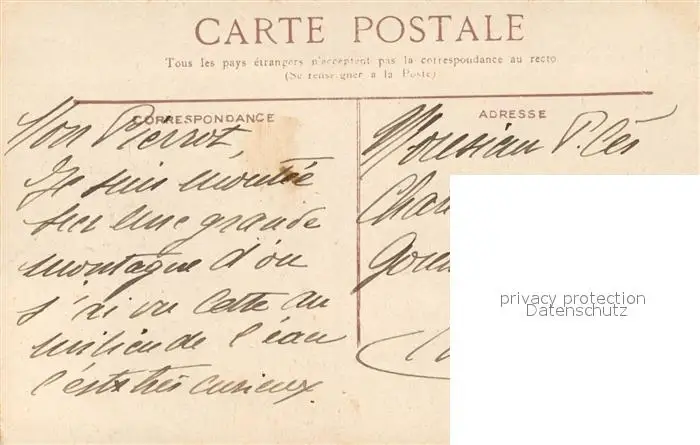 CARTE POSTALE
Tous les pays étrangers n'acceptent pas la correspondance au recto
(Se renseigner à la Poste)
CORRESPONDANCE
ADRESSE
Mon Pierrot,
Je suis montée
sur une grande
montagne d'ou
j'ai vu Cette au
milieu de l'eau
c'est très curieux
Monsieur P.
privacy protection
Datenschutz